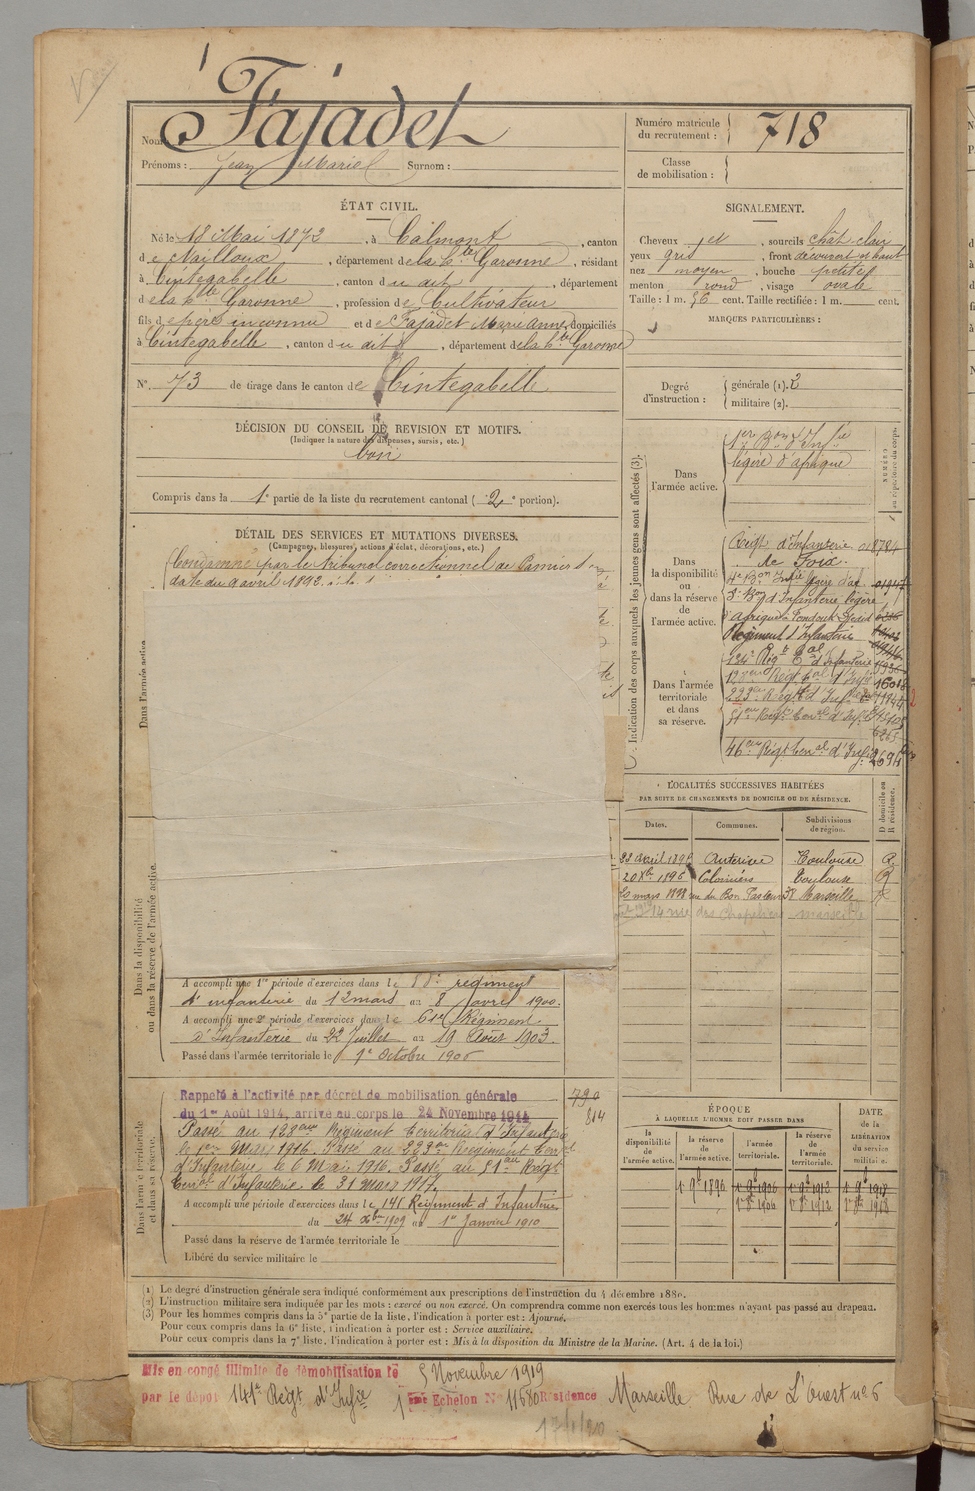 Fajadet
Nom :
Prénoms : Jean Marie Surnom :
Numéro matricule
du recrutement : 718
Classe
de mobilisation :
ÉTAT CIVIL.
Né le 18 Mai 1872, à Calmont, canton
de Nailloux, département de la hte Garonne, résidant
à Cintegabelle, canton du dit, département
de la hte Garonne, profession de Cultivateur
fils de père inconnu et de Fajadet Marie Anne, domiciliés
à Cintegabelle, canton du dit, département de la hte Garonne
N° 73 de tirage dans le canton de Cintegabelle
DÉCISION DU CONSEIL DE REVISION ET MOTIFS.
(Indiquer la nature des dispenses, sursis, etc.)
bon
Compris dans la 1e partie de la liste du recrutement cantonal (2e portion).
DÉTAIL DES SERVICES ET MUTATIONS DIVERSES.
(Campagnes, blessures, actions d'éclat, décorations, etc.)
Condamné par le tribunal correctionnel de Pamiers
date du 9 avril 1892
Dans l'armée active.
Dans la disponibilité
ou dans la réserve de l'armée active.
A accompli une 1re période d'exercices dans le régiment
d'infanterie du 12 mars au 8 avril 1900.
A accompli une 2e période d'exercices dans le 61e Régiment
d'Infanterie du 22 Juillet au 19 Août 1903.
Passé dans l'armée territoriale le 1er Octobre 1906
Dans l'armée territoriale
et dans sa réserve.
Rappelé à l'activité par décret de mobilisation générale
du 1er Août 1914, arrivé au corps le 24 Novembre 1914
790
814
Passé au 128eme Régiment Territorial d'Infanterie
le 1er Mars 1916. Passé au 223eme Régiment Terr
d'Infanterie le 6 Mai 1916. Passé au 51eme Régt
Terral d'Infanterie le 31 Mars 1917.
A accompli une période d'exercices dans le 141 Régiment d'Infanterie
du 24 Xbre 1909 au 1er Janvier 1910
Passé dans la réserve de l'armée territoriale le
Libéré du service militaire le
SIGNALEMENT.
Cheveux, sourcils chât clair
yeux gris, front découvert et haut
nez moyen, bouche petite
menton rond, visage ovale
Taille : 1 m. 56 cent. Taille rectifiée : 1 m. cent.
MARQUES PARTICULIÈRES :
Degré
d'instruction :
générale (1). 2
militaire (2).
Indication des corps auxquels les jeunes gens sont affectés (3).
NUMÉRO
au répertoire du corps.
Dans
l'armée active.
1er Bon d'Infie
légère d'afrique
Dans
la disponibilité
ou
dans la réserve
de
l'armée active.
Régt d'Infanterie
de Foix.
4e Bon Infie légère d'af
3e Bon d'Infanterie légère
Régiment d'Infanterie
Dans l'armée
territoriale
et dans
sa réserve.
134e Rég Tal d'Infanterie
128eme Régt Tal d'Infie
223eme Régt d'Inf
51eme Régt Terral d'Infie
46eme Régt Terral d'Infie
LOCALITÉS SUCCESSIVES HABITÉES
PAR SUITE DE CHANGEMENTS DE DOMICILE OU DE RÉSIDENCE.
Dates. Communes. Subdivisions
de région.
D domicile ou
R résidence.
Toulouse R.
20 Xbre 1896 Colomiers Toulouse R
20 mars 1898 rue du Bon Pasteur 38 Marseille R
14 rue des Chapeliers Marseille
ÉPOQUE
À LAQUELLE L'HOMME DOIT PASSER DANS
DATE
de la
LIBÉRATION
du service
militaire.
la
disponibilité
de l'armée active.
la réserve
de
l'armée active.
l'armée
territoriale.
la réserve
de l'armée
territoriale.
1r 9b 1896 1r 9b 1906 1r 9b 1912 1r 9b 1918
1r 8b 1906 1r 8b 1912 1r 8b 1918
(1) Le degré d'instruction générale sera indiqué conformément aux prescriptions de l'instruction du 4 décembre 1889.
(2) L'instruction militaire sera indiquée par les mots : exercé ou non exercé. On comprendra comme non exercés tous les hommes n'ayant pas passé au drapeau.
(3) Pour les hommes compris dans la 5e partie de la liste, l'indication à porter est : Ajourné.
Pour ceux compris dans la 6e liste, l'indication à porter est : Service auxiliaire.
Pour ceux compris dans la 7e liste, l'indication à porter est : Mis à la disposition du Ministre de la Marine. (Art. 4 de la loi.)
Mis en congé illimité de démobilisation le 5 Novembre 1919
par le dépôt 141e Régt d'Infie Echelon N° 11680 Résidence Marseille Rue de L'Ouest n° 6